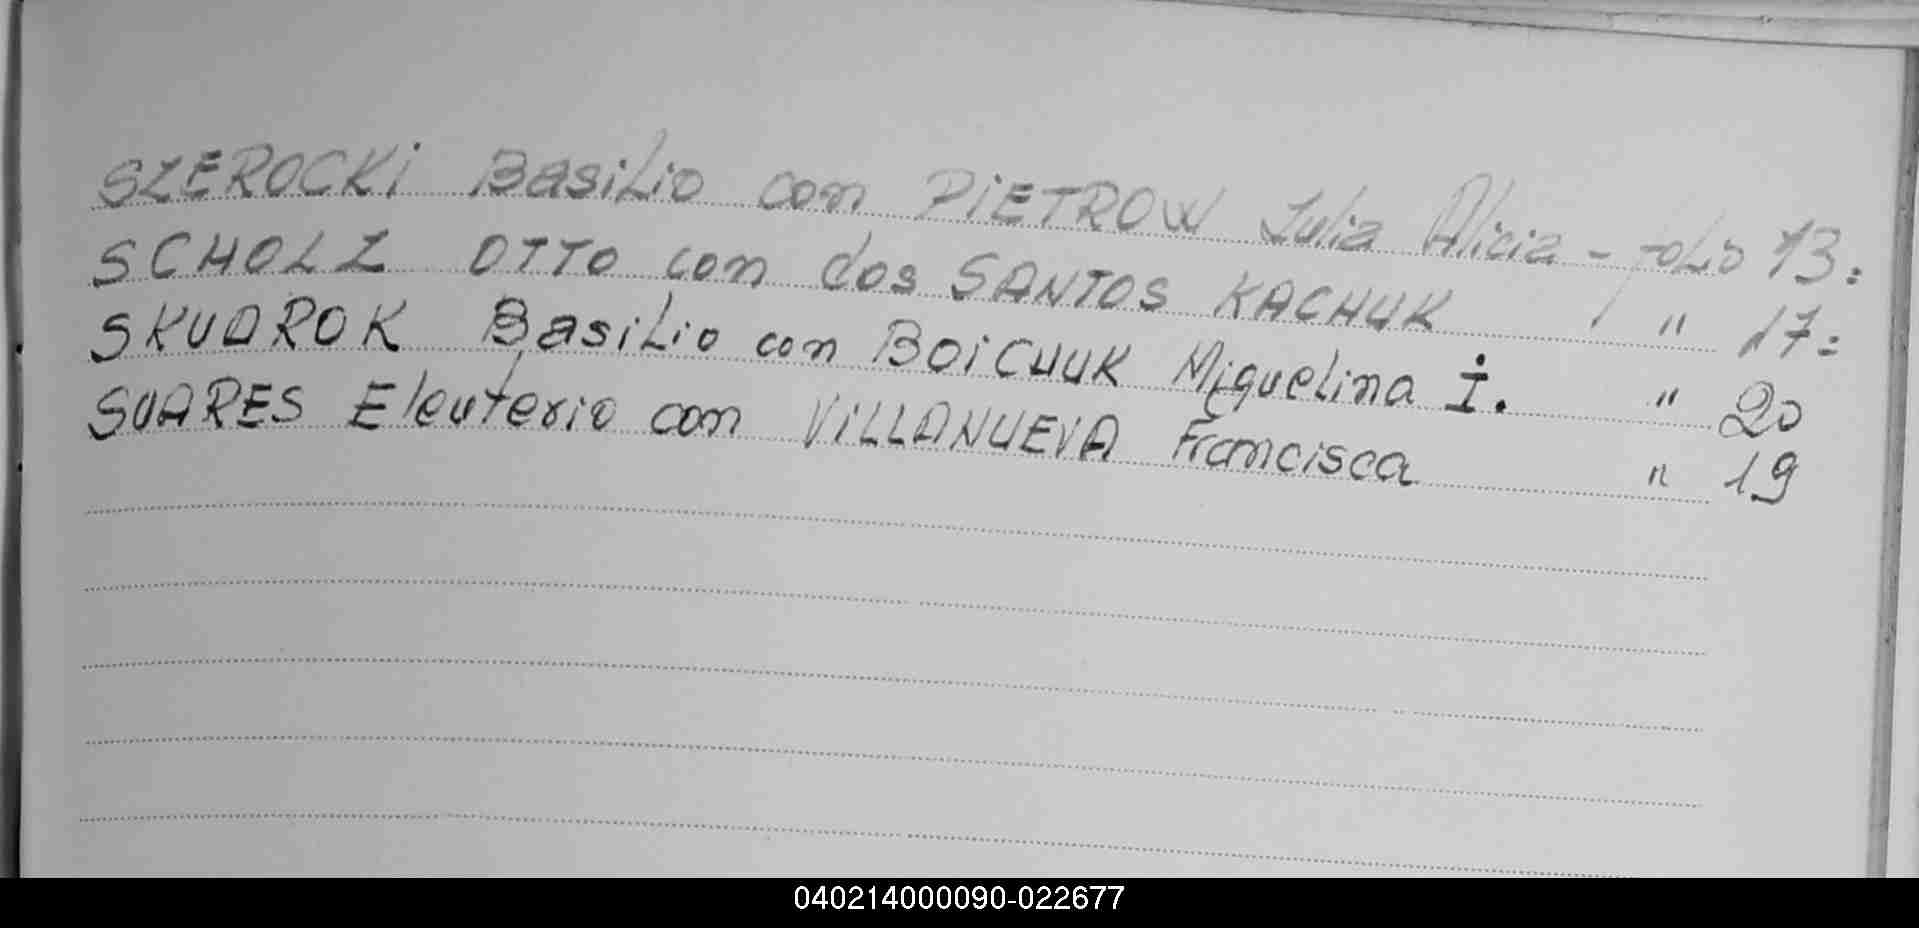 SZEROCKi Basilio con PiETROW Julia Alicia - folio 13:
SCHOLZ OTTO con dos SANTOS KACHUK " 17:
SKUAROK Basilio con BOiCHUK Miquelina I. " 20
SUARES Eleuterio con ViLLANUEVA Francisca " 19
040214000090-022677